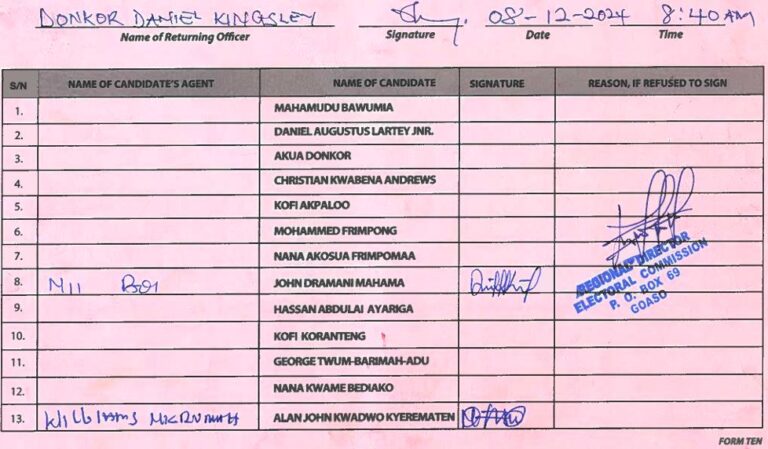 DONKOR DANIEL KINGSLEY 08-12-2024 8:40AM
Name of Returning Officer Signature Date Time
S/N NAME OF CANDIDATE'S AGENT NAME OF CANDIDATE SIGNATURE REASON, IF REFUSED TO SIGN
1. MAHAMUDU BAWUMIA
2. DANIEL AUGUSTUS LARTEY JNR.
3. AKUA DONKOR
4. CHRISTIAN KWABENA ANDREWS
5. KOFI AKPALOO
6. MOHAMMED FRIMPONG
7. NANA AKOSUA FRIMPOMAA
8. JOHN DRAMANI MAHAMA
9. HASSAN ABDULAI AYARIGA
10. KOFI KORANTENG
11. GEORGE TWUM-BARIMAH-ADU
12. NANA KWAME BEDIAKO
13. ALAN JOHN KWADWO KYEREMATEN
REGIONAL DIRECTOR
ELECTORAL COMMISSION
P. O. BOX 69
GOASO
FORM TEN